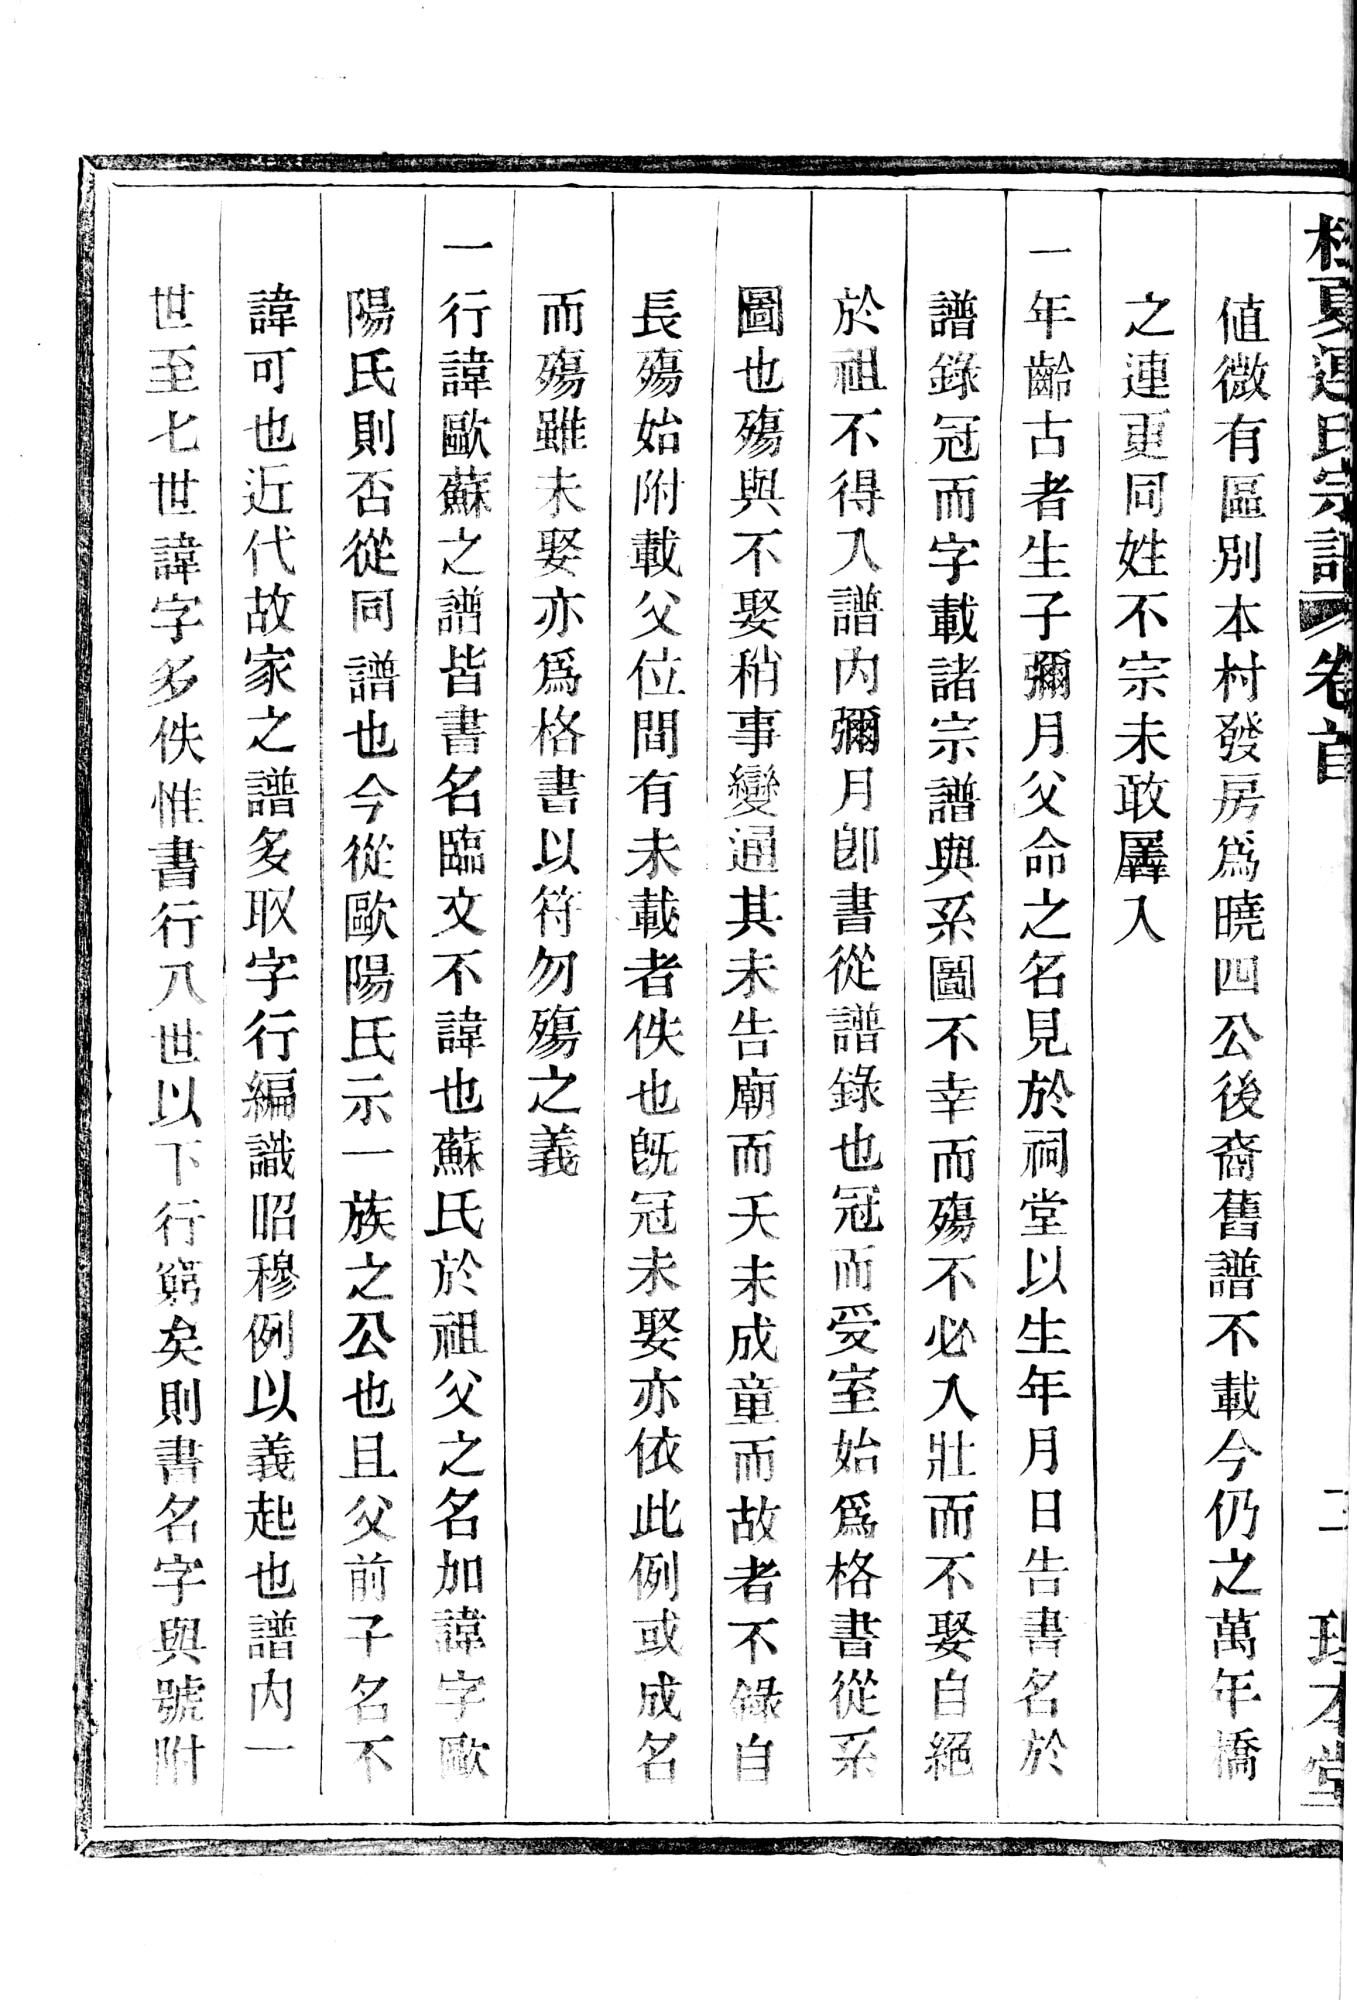 氏宗譜 卷首
值微有區別本村發房爲曉四公後裔舊譜不載今仍之萬年橋
之連更同姓不宗未敢羼入
一年齡古者生子彌月父命之名見於祠堂以生年月日告書名於
譜錄冠而字載諸宗譜與系圖不幸而殤不必入壯而不娶自絕
於祖不得入譜內彌月卽書從譜錄也冠而受室始爲格書從系
圖也殤與不娶稍事變通其未告廟而夭未成童而故者不錄自
長殤始附載父位間有未載者佚也旣冠未娶亦依此例或成名
而殤雖未娶亦爲格書以符勿殤之義
一行諱歐蘇之譜皆書名臨文不諱也蘇氏於祖父之名加諱字歐
陽氏則否從同譜也今從歐陽氏示一族之公也且父前子名不
諱可也近代故家之譜多取字行編識昭穆例以義起也譜內一
世至七世諱字多佚惟書行八世以下行窮矣則書名字與號附